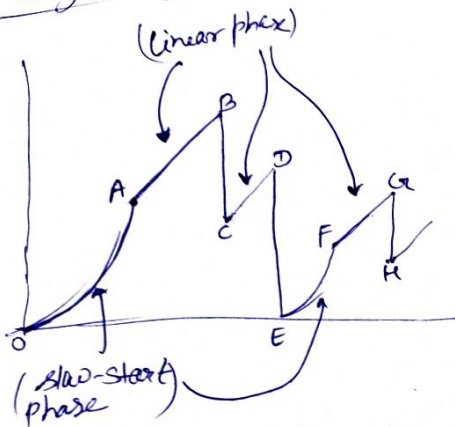 (linear phase)
B
D
A
G
C
F
H
O
E
(slow-start)
phase